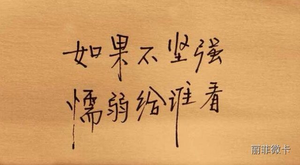 如果不坚强
懦弱给谁看
厨菲微卡